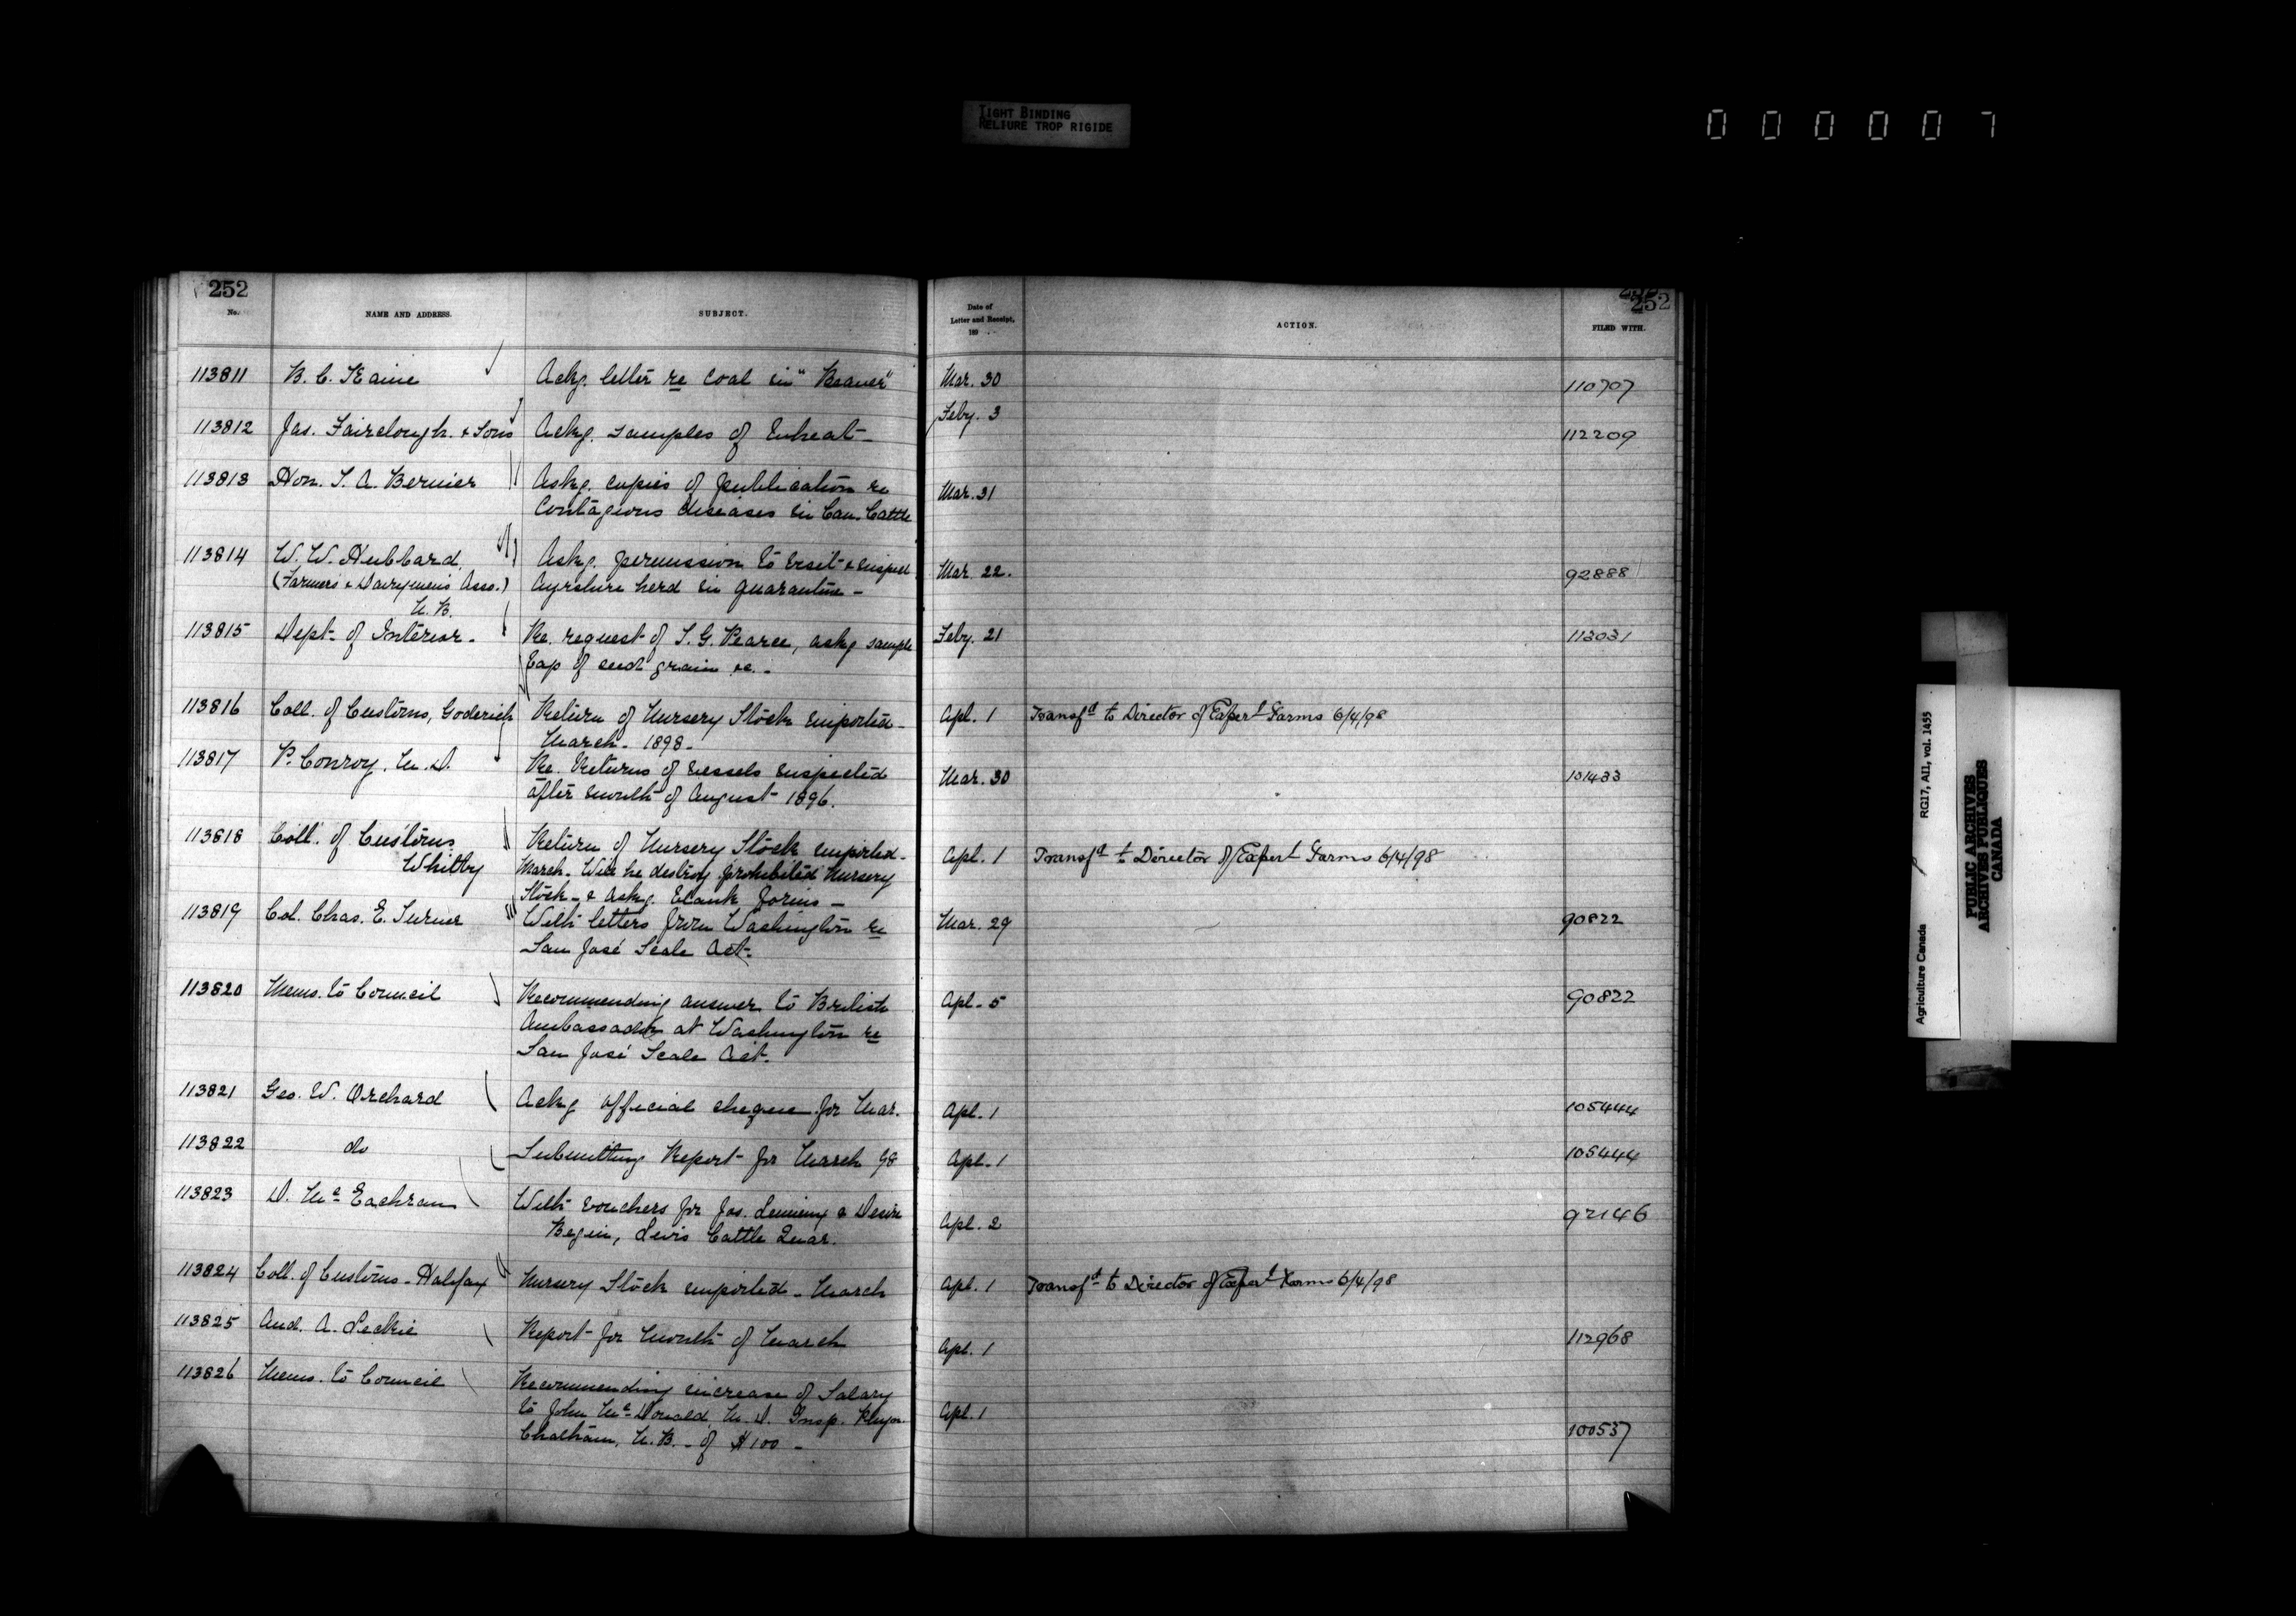 TIGHT BINDING
RELIURE TROP RIGIDE
000007
252
No. NAME AND ADDRESS. SUBJECT. Date of Letter and Receipt, 189 ACTION. FILED WITH.
252
113811 Ackg. letter re Coal in "Beaver" Mar. 30 110707
113812 Jas. Fairclough & Sons Ackg. samples of Wheat Feby. 3 112209
113813 Hon. T. A. Bernier Askg. copies of publication re Mar. 31
Contagious diseases in Can. Cattle
113814 W. W. Hubbard, Askg. permission to visit & inspect Mar. 22. 92888
(Farmers & Dairymen's Asso.) Ayrshire herd in quarantine -
N. B.
113815 Dept. of Interior - Re. request of T. G. Pearce, askg sample Feby. 21 113031
bag of seed grain &c. -
113816 Coll. of Customs, Goderich Return of Nursery Stock imported - Apl. 1 Transfd to Director of Experl Farms 6/4/98
March - 1898 -
113817 P. Conroy, M. D. Re. Returns of vessels inspected Mar. 30 101433
after month of August 1896.
113818 Coll. of Customs Return of Nursery Stock imported - Apl. 1 Transfd to Director of Experl Farms 6/4/98
Whitby March. Will he destroy prohibited Nursery
Stock - & Askg. blank forms -
113819 Col. Chas. E. Turner With letters from Washington re Mar. 29 90822
San José Scale Act -
113820 Memo. to Council Recommending answer to British Apl. 5 90822
Ambassador at Washington re
San José Scale Act.
113821 Geo. W. Orchard Ackg official cheque for Mar. Apl. 1 105444
113822 do Submitting Report for March 98 Apl. 1 105444
113823 D. McEachran With vouchers for Jos. & Apl. 2 92146
Begin, Levis Cattle Quar.
113824 Coll. of Customs - Halifax Nursery Stock imported - March Apl. 1 Transfd to Director of Experl Farms 6/4/98
113825 And. A. Leckie Report for month of March Apl. 1 112968
113826 Memo. to Council Recommending increase of Salary Apl. 1 100537
to John McDonald, M. D. Insp. Phys.
Chatham, N. B. - of $100 -
Agriculture Canada RG17, AII, vol. 1455
PUBLIC ARCHIVES
ARCHIVES PUBLIQUES
CANADA